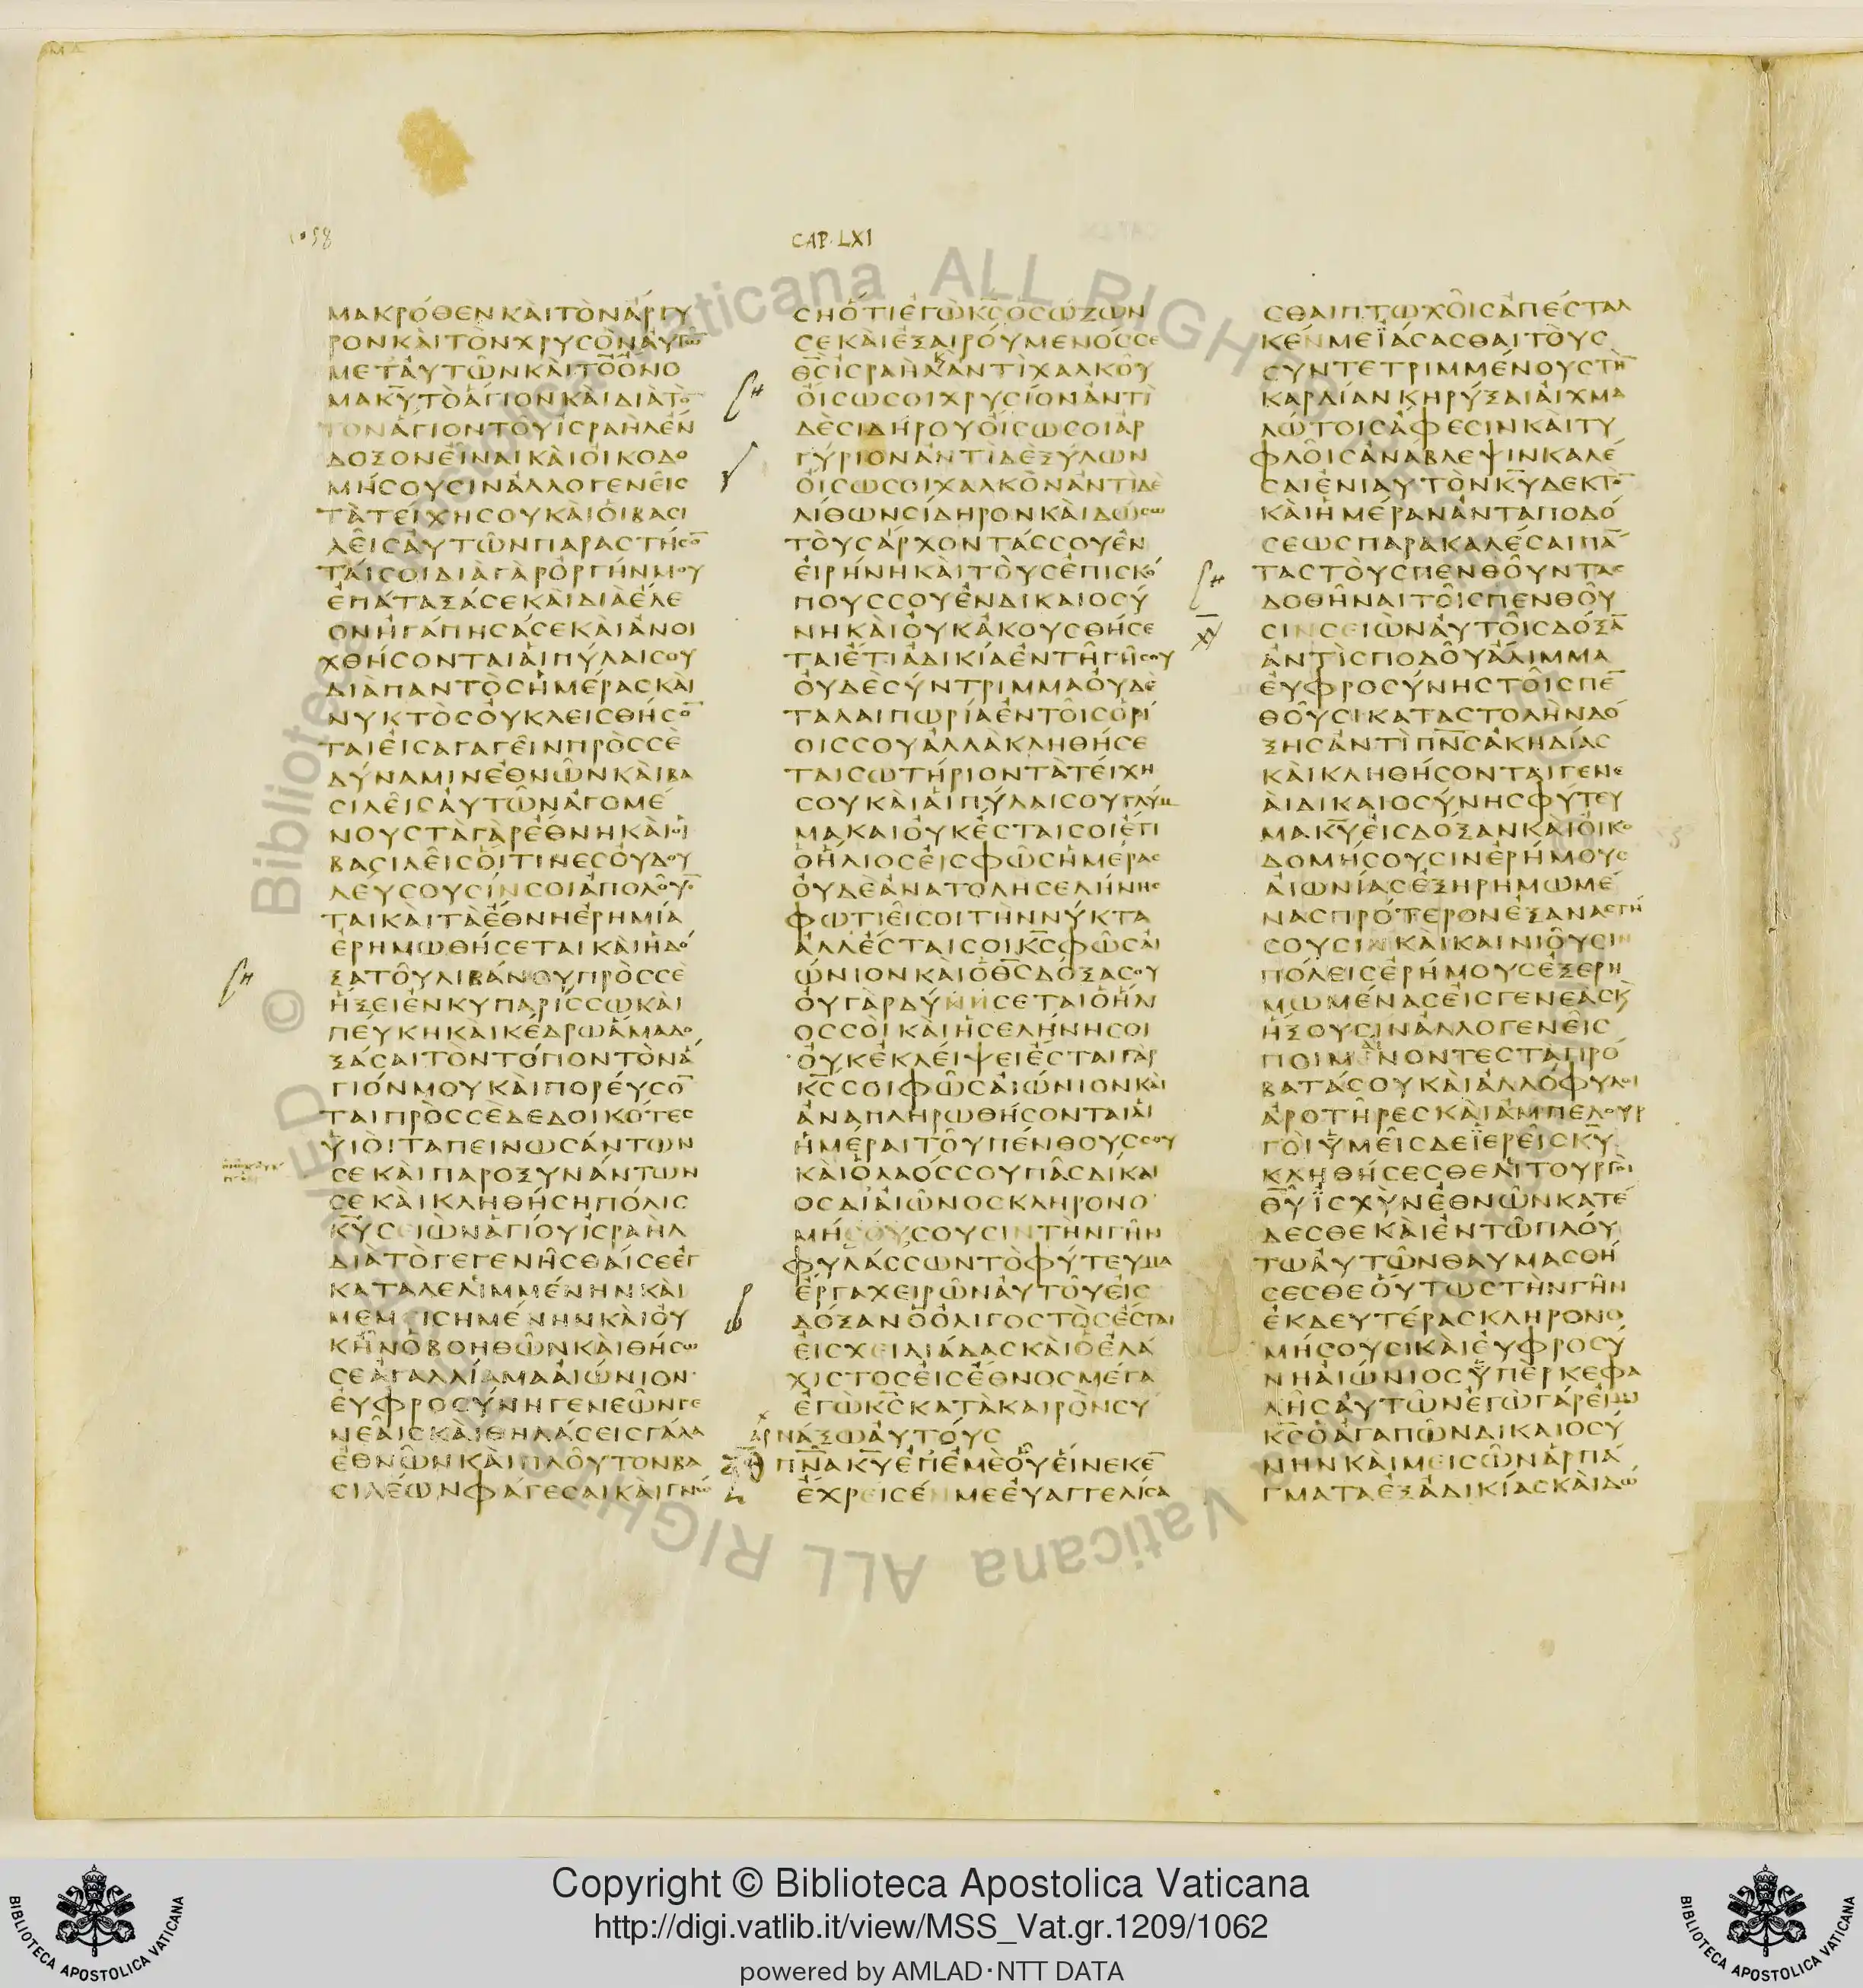 1058
CAP. LXI
ΜΑΚΡΌΘΕΝΚΑῚΤῸΝἈΡΓΥ
ΡΟΝΚΑῚΤῸΝΧΡΥϹῸΝΑΥΤΩ̅
ΜΕΤΑΥΤΩ͂ΝΚΑῚΤΟ̅ΟΝΟ
ΜΑΚ̅Υ̅ΤῸΑΓΙΟΝΚΑῚΔΙΑΤΟ
ΤΟΝΑΓΙΟΝΤΟΥΙϹΡΑΗΛΕΝ
ΔΟΞΟΝΕΙΝΑΙΚΑΙΟΙΚΟΔΟ
ΜΗϹΟΥϹΙΝΑΛΛΟΓΕΝΕΙϹ
ΤΑΤΕΙΧΗϹΟΥΚΑΙΟΙΒΑϹΙ
ΛΕΙϹΑΥΤΩΝΠΑΡΑϹΤΗϹΟ̅
ΤΑΙϹΟΙΔΙΑΓΑΡΟΡΓΗΝΜΟΥ
ΕΠΑΤΑΞΑϹΕΚΑΙΔΙΑΕΛΕ
ΟΝΗΓΑΠΗϹΑϹΕΚΑΙΑΝΟΙ
ΧΘΗϹΟΝΤΑΙΑΙΠΥΛΑΙϹΟΥ
ΔΙΑΠΑΝΤΟϹΗΜΕΡΑϹΚΑΙ
ΝΥΚΤΟϹΟΥΚΛΕΙϹΘΗϹΟ̅
ΤΑΙΕΙϹΑΓΑΓΕΙΝΠΡΟϹϹΕ
ΔΥΝΑΜΙΝΕΘΝΩΝΚΑΙΒΑ
ϹΙΛΕΙϹΑΥΤΩΝΑΓΟΜΕ
ΝΟΥϹΤΑΓΑΡΕΘΝΗΚΑΙΟΙ
ΒΑϹΙΛΕΙϹΟΙΤΙΝΕϹΟΥΔΟΥ
ΛΕΥϹΟΥϹΙΝϹΟΙΑΠΟΛΟΥ̅
ΤΑΙΚΑΙΤΑΕΘΝΗΕΡΗΜΙΑ
ΕΡΗΜΩΘΗϹΕΤΑΙΚΑΙΗΔΟ
ΞΑΤΟΥΛΙΒΑΝΟΥΠΡΟϹϹΕ
ΗΞΕΙΕΝΚΥΠΑΡΙϹϹΩΚΑΙ
ΠΕΥΚΗΚΑΙΚΕΔΡΩΑΜΑΔΟ
ΞΑϹΑΙΤΟΝΤΟΠΟΝΤΟΝΑ
ΓΙΟΝΜΟΥΚΑΙΠΟΡΕΥϹΟ̅
ΤΑΙΠΡΟϹϹΕΔΕΔΟΙΚΟΤΕϹ
ΥΙΟΙΤΑΠΕΙΝΩϹΑΝΤΩΝ
ϹΕΚΑΙΠΑΡΟΞΥΝΑΝΤΩΝ
ϹΕΚΑΙΚΛΗΘΗϹΗΠΟΛΙϹ
Κ̅Υ̅ϹΕΙΩΝΑΓΙΟΥΙϹΡΑΗΛ
ΔΙΑΤΟΓΕΓΕΝΗϹΘΑΙϹΕΕΓ
ΚΑΤΑΛΕΛΙΜΜΕΝΗΝΚΑΙ
ΜΕΜΕΙϹΗΜΕΝΗΝΚΑΙΟΥ
ΚΗΝΟΒΟΗΘΩΝΚΑΙΘΗϹΩ
ϹΕΑΓΑΛΛΙΑΜΑΑΙΩΝΙΟΝ
ΕΥΦΡΟϹΥΝΗΓΕΝΕΩΝΓΕ
ΝΕΑΙϹΚΑΙΘΗΛΑϹΕΙϹΓΑΛΑ
ΕΘΝΩΝΚΑΙΠΛΟΥΤΟΝΒΑ
ϹΙΛΕΩΝΦΑΓΕϹΑΙΚΑΙΓΝΩ
ϹΗΟΤΙΕΓΩΚ̅Ϲ̅ΟϹΩΖΩΝ
ϹΕΚΑΙΕΞΑΙΡΟΥΜΕΝΟϹϹΕ
Θ̅Ϲ̅ΙϹΡΑΗΛΚΑΝΤΙΧΑΛΚΟΥ
ΟΙϹΩϹΟΙΧΡΥϹΙΟΝΑΝΤΙ
ΔΕϹΙΔΗΡΟΥΟΙϹΩϹΟΙΑΡ
ΓΥΡΙΟΝΑΝΤΙΔΕΞΥΛΩΝ
ΟΙϹΩϹΟΙΧΑΛΚΟΝΑΝΤΙΔΕ
ΛΙΘΩΝϹΙΔΗΡΟΝΚΑΙΔΩϹΩ
ΤΟΥϹΑΡΧΟΝΤΑϹϹΟΥΕΝ
ΕΙΡΗΝΗΚΑΙΤΟΥϹΕΠΙϹΚΟ
ΠΟΥϹϹΟΥΕΝΔΙΚΑΙΟϹΥ
ΝΗΚΑΙΟΥΚΑΚΟΥϹΘΗϹΕ
ΤΑΙΕΤΙΑΔΙΚΙΑΕΝΤΗΓΗϹΟΥ
ΟΥΔΕϹΥΝΤΡΙΜΜΑΟΥΔΕ
ΤΑΛΑΙΠΩΡΙΑΕΝΤΟΙϹΟΡΙ
ΟΙϹϹΟΥΑΛΛΑΚΛΗΘΗϹΕ
ΤΑΙϹΩΤΗΡΙΟΝΤΑΤΕΙΧΗ
ϹΟΥΚΑΙΑΙΠΥΛΑΙϹΟΥΓΛΥΜ
ΜΑΚΑΙΟΥΚΕϹΤΑΙϹΟΙΕΤΙ
ΟΗΛΙΟϹΕΙϹΦΩϹΗΜΕΡΑϹ
ΟΥΔΕΑΝΑΤΟΛΗϹΕΛΗΝΗϹ
ΦΩΤΙΕΙϹΟΙΤΗΝΝΥΚΤΑ
ΑΛΛΕϹΤΑΙϹΟΙΚ̅Ϲ̅ΦΩϹΑΙ
ΩΝΙΟΝΚΑΙΟΘ̅Ϲ̅ΔΟΞΑϹΟΥ
ΟΥΓΑΡΔΥΝΗϹΕΤΑΙΟΗΛΙ
ΟϹϹΟΙΚΑΙΗϹΕΛΗΝΗϹΟΙ
ΟΥΚΕΚΛΕΙΨΕΙΕϹΤΑΙΓΑΡ
Κ̅Ϲ̅ϹΟΙΦΩϹΑΙΩΝΙΟΝΚΑΙ
ΑΝΑΠΛΗΡΩΘΗϹΟΝΤΑΙΑΙ
ΗΜΕΡΑΙΤΟΥΠΕΝΘΟΥϹϹΟΥ
ΚΑΙΟΛΑΟϹϹΟΥΠΑϹΔΙΚΑΙ
ΟϹΑΙΑΙΩΝΟϹΚΛΗΡΟΝΟ
ΜΗϹΟΥϹΟΥϹΙΝΤΗΝΓΗΝ
ΦΥΛΑϹϹΩΝΤΟΦΥΤΕΥΜΑ
ΕΡΓΑΧΕΙΡΩΝΑΥΤΟΥΕΙϹ
ΔΟΞΑΝΟΟΛΙΓΟϹΤΟϹΕϹΤΑΙ
ΕΙϹΧΕΙΛΙΑΔΑϹΚΑΙΟΕΛΑ
ΧΙϹΤΟϹΕΙϹΕΘΝΟϹΜΕΓΑ
ΕΓΩΚ̅Ϲ̅ΚΑΤΑΚΑΙΡΟΝϹΥ
ΝΑΞΩΑΥΤΟΥϹ
Π̅Ν̅Α̅Κ̅Υ̅ΕΠΕΜΕΟΥΕΙΝΕΚΕ̅
ΕΧΡΕΙϹΕΝΜΕΕΥΑΓΓΕΛΙϹΑ
ϹΘΑΙΠΤΩΧΟΙϹΑΠΕϹΤΑΛ
ΚΕΝΜΕΪΑϹΑϹΘΑΙΤΟΥϹ
ϹΥΝΤΕΤΡΙΜΜΕΝΟΥϹΤΗ̅
ΚΑΡΔΙΑΝΚΗΡΥΞΑΙΑΙΧΜΑ
ΛΩΤΟΙϹΑΦΕϹΙΝΚΑΙΤΥ
ΦΛΟΙϹΑΝΑΒΛΕΨΙΝΚΑΛΕ
ϹΑΙΕΝΙΑΥΤΟΝΚ̅Υ̅ΔΕΚΤΟ̅
ΚΑΙΗΜΕΡΑΝΑΝΤΑΠΟΔΟ
ϹΕΩϹΠΑΡΑΚΑΛΕϹΑΙΠΑ̅
ΤΑϹΤΟΥϹΠΕΝΘΟΥΝΤΑϹ
ΔΟΘΗΝΑΙΤΟΙϹΠΕΝΘΟΥ
ϹΙΝϹΕΙΩΝΑΥΤΟΙϹΔΟΞΑ̅
ΑΝΤΙϹΠΟΔΟΥΑΛΙΜΜΑ
ΕΥΦΡΟϹΥΝΗϹΤΟΙϹΠΕ̅
ΘΟΥϹΙΚΑΤΑϹΤΟΛΗΝΔΟ
ΞΗϹΑΝΤΙΠ̅Ν̅Ϲ̅ΑΚΗΔΙΑϹ
ΚΑΙΚΛΗΘΗϹΟΝΤΑΙΓΕΝΕ
ΑΙΔΙΚΑΙΟϹΥΝΗϹΦΥΤΕΥ
ΜΑΚ̅Υ̅ΕΙϹΔΟΞΑΝΚΑΙΟΙΚΟ
ΔΟΜΗϹΟΥϹΙΝΕΡΗΜΟΥϹ
ΑΙΩΝΙΑϹΕΞΗΡΗΜΩΜΕ
ΝΑϹΠΡΟΤΕΡΟΝΕΞΑΝΑϹΤΗ
ϹΟΥϹΙΝΚΑΙΚΑΙΝΙΟΥϹΙΝ
ΠΟΛΕΙϹΕΡΗΜΟΥϹΕΞΕΡΗ
ΜΩΜΕΝΑϹΕΙϹΓΕΝΕΑϹΚ
ΗΞΟΥϹΙΝΑΛΛΟΓΕΝΕΙϹ
ΠΟΙΜΑΙΝΟΝΤΕϹΤΑΠΡΟ
ΒΑΤΑϹΟΥΚΑΙΑΛΛΟΦΥΛΟΙ
ΑΡΟΤΗΡΕϹΚΑΙΑΜΠΕΛΟΥΡ
ΓΟΙΥΜΕΙϹΔΕΪΕΡΕΙϹΚ̅Υ̅
ΚΛΗΘΗϹΕϹΘΕΛΙΤΟΥΡΓΟΙ
Θ̅Υ̅ΙϹΧΥΝΕΘΝΩΝΚΑΤΕ
ΔΕϹΘΕΚΑΙΕΝΤΩΠΛΟΥ
ΤΩΑΥΤΩΝΘΑΥΜΑϹΘΗ
ϹΕϹΘΕΟΥΤΩϹΤΗΝΓΗΝ
ΕΚΔΕΥΤΕΡΑϹΚΛΗΡΟΝΟ
ΜΗϹΟΥϹΙΚΑΙΕΥΦΡΟϹΥ
ΝΗΑΙΩΝΙΟϹΥΠΕΡΚΕΦΑ
ΛΗϹΑΥΤΩΝΕΓΩΓΑΡΕΙΜΙ
Κ̅Ϲ̅ΟΑΓΑΠΩΝΔΙΚΑΙΟϹΥ
ΝΗΝΚΑΙΜΕΙϹΩΝΑΡΠΑ
ΓΜΑΤΑΕΞΑΔΙΚΙΑϹΚΑΙΔΩ
Copyright © Biblioteca Apostolica Vaticana
http://digi.vatlib.it/view/MSS_Vat.gr.1209/1062
powered by AMLAD·NTT DATA
BIBLIOTECA APOSTOLICA VATICANA
BIBLIOTECA APOSTOLICA VATICANA